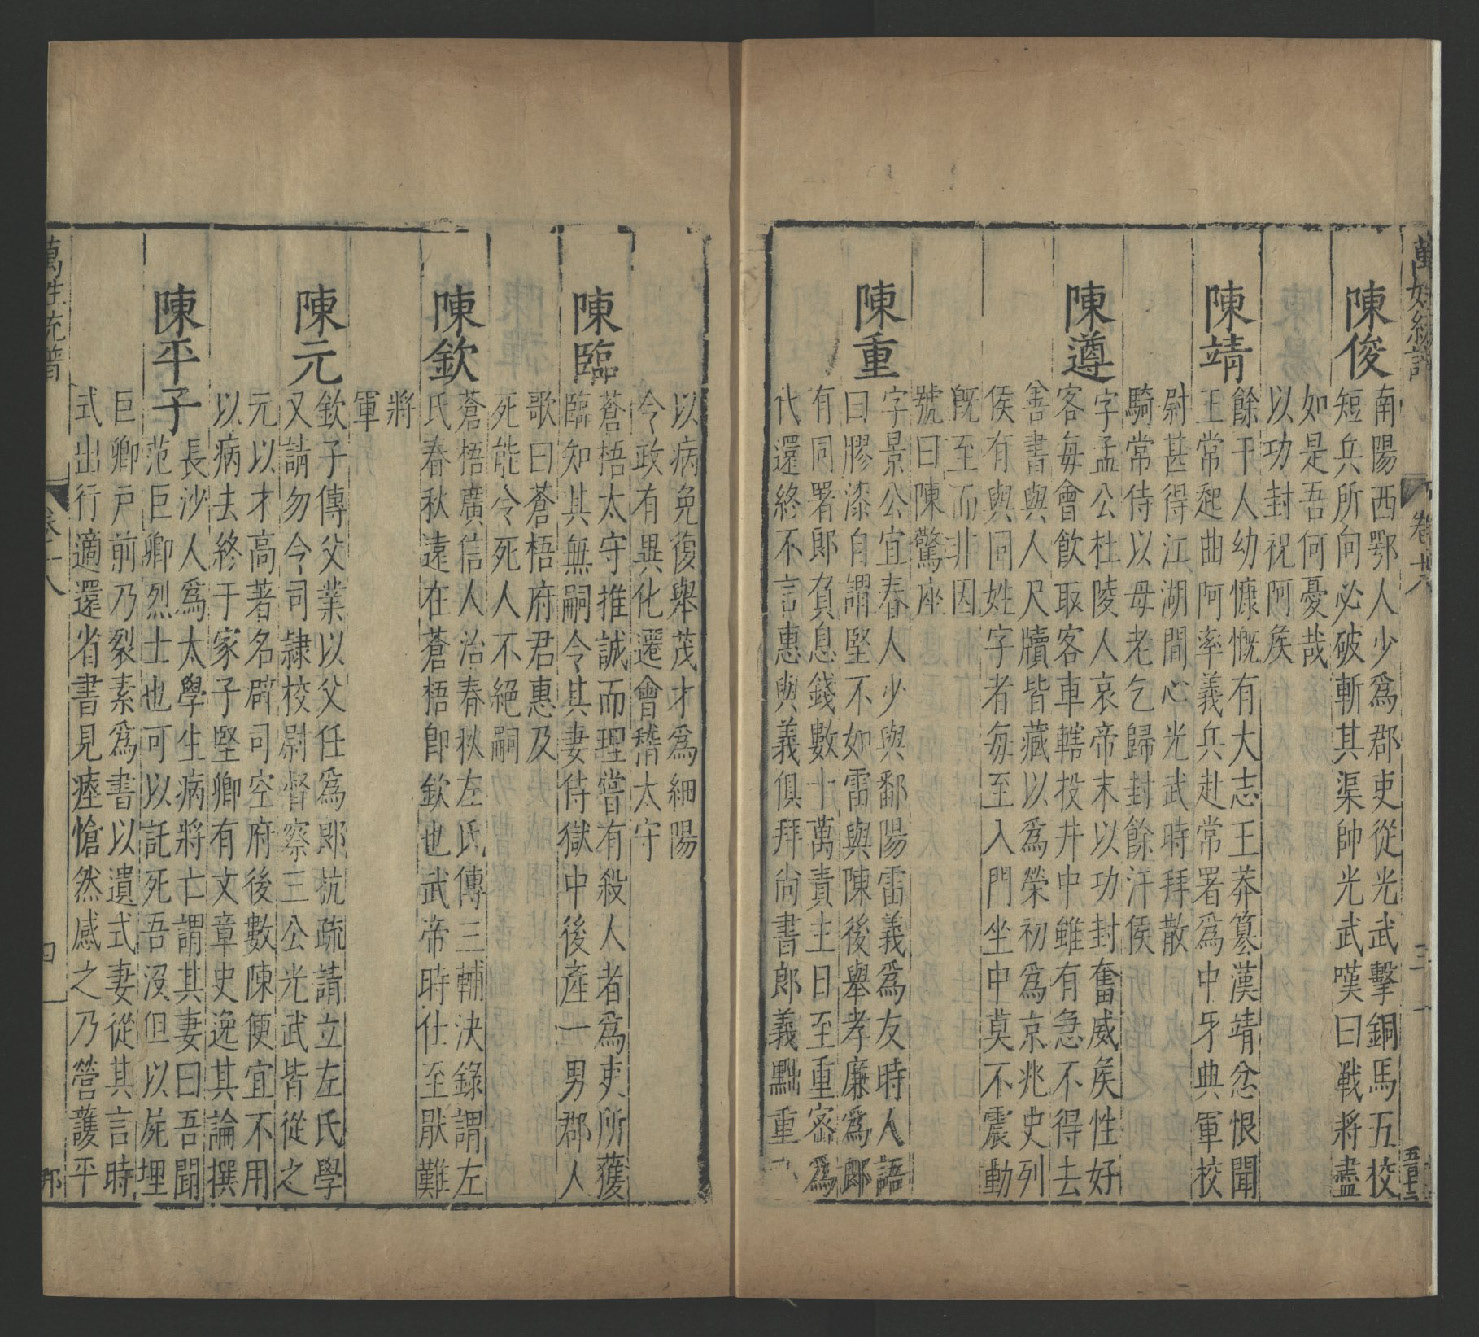 萬姓統譜
卷十八
三
陳俊
南陽西鄂人少爲郡吏從光武擊銅馬五校
短兵所向必破斬其渠帥光武嘆曰戰將盡
如是吾何憂哉
以功封祝阿侯
陳靖
餘干人幼慷慨有大志王莽篡漢靖忿恨聞
王常起曲阿率義兵赴常署爲中牙典軍校
尉甚得江湖間心光武時拜散
騎常侍以母老乞歸封餘汗侯
陳遵
字孟公杜陵人哀帝末以功封奮威矦性好
客每會飲取客車轄投井中雖有急不得去
善書與人尺牘皆藏以爲榮初爲京兆史列
侯有與同姓字者每至入門坐中莫不震動
旣至而非因
號曰陳驚座
陳重
字景公宜春人少與鄱陽雷義爲友時人語
曰膠漆自謂堅不如雷與陳後舉孝廉爲郎
有同署郎負息錢數十萬責主日至重密爲
代還終不言惠與義俱拜尚書郎義黜重
以病免復舉茂才爲細陽
令政有異化遷會稽太守
陳臨
蒼梧太守推誠而理嘗有殺人者爲吏所獲
臨知其無嗣令其妻侍獄中後產一男郡人
歌曰蒼梧府君惠及
死能令死人不絕嗣
陳欽
蒼梧廣信人治春秋左氏傳三輔決錄謂左
氏春秋遠在蒼梧卽欽也武帝時仕至厭難
將
軍
陳元
欽子傳父業以父任爲郎抗疏請立左氏學
又請勿令司隷校尉督察三公光武皆從之
元以才高著名辟司空府後數陳便宜不用
以病去終于家子堅卿有文章史逸其論撰
陳平子
長沙人爲太學生病將亡謂其妻曰吾聞
范巨卿烈士也可以託死吾沒但以屍埋
巨卿戶前乃裂素爲書以遺式妻從其言時
式出行適還省書見瘞愴然感之乃營護平
萬姓統譜
卷十八
四